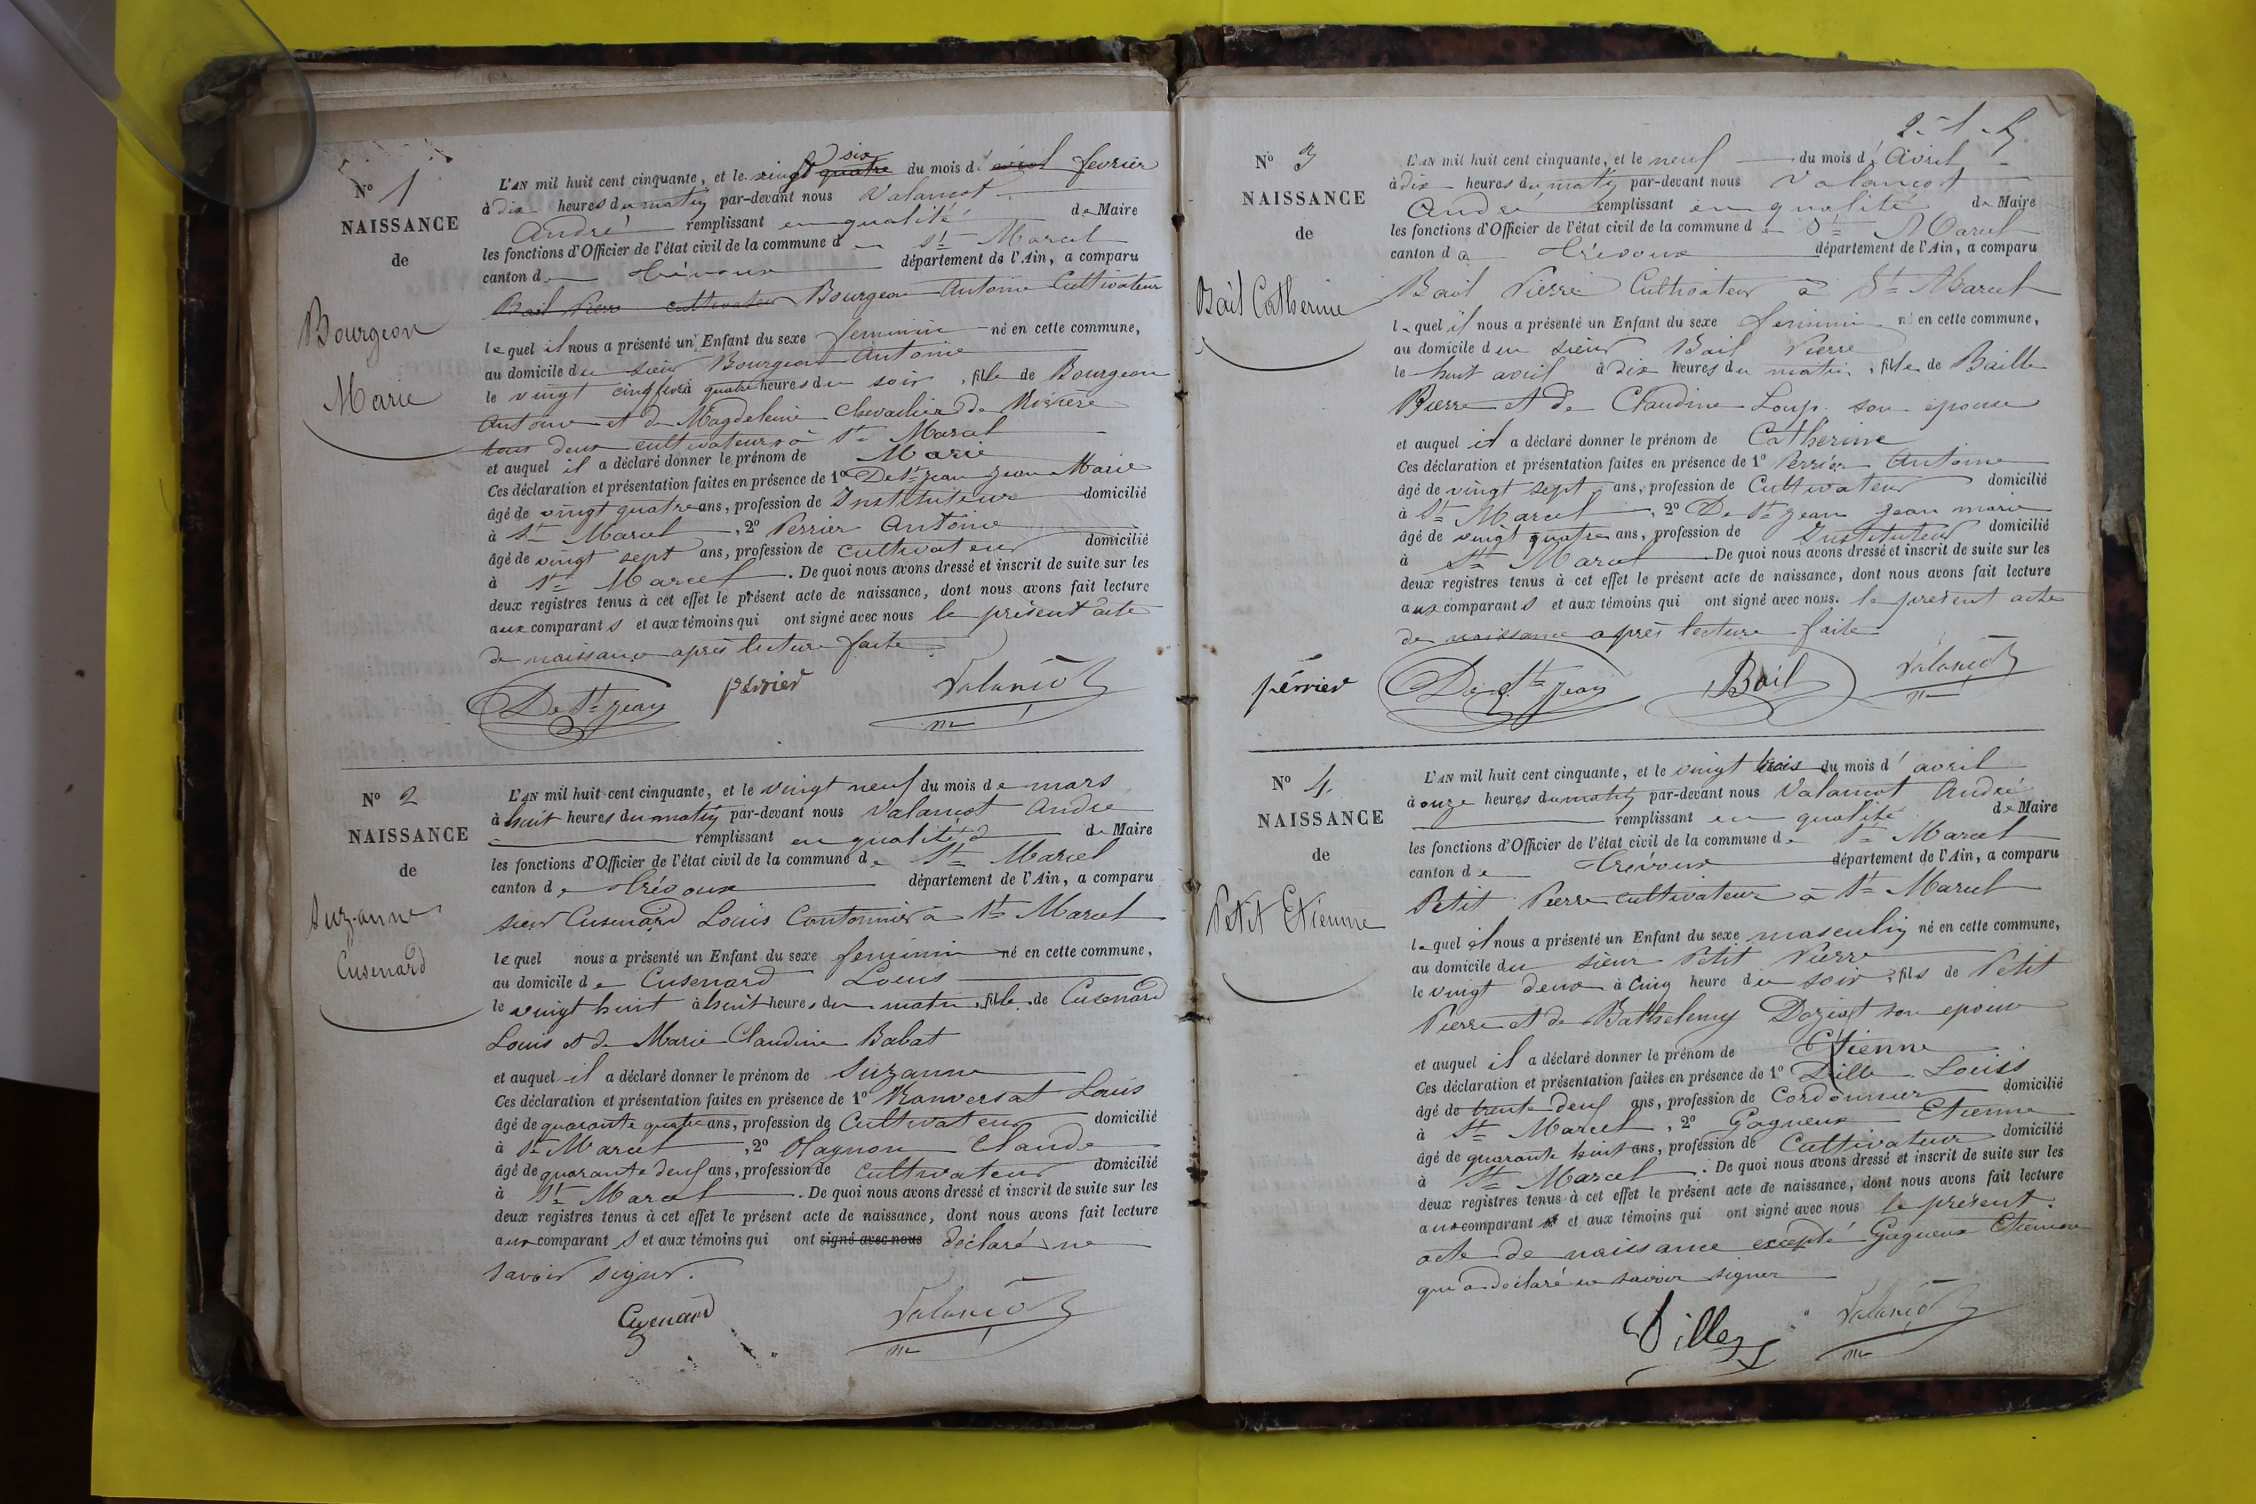 N° 1
NAISSANCE
de
Bourgeon
Marie
L'AN mil huit cent cinquante, et le vingt quatre six du mois d' avril fevrier
à dix heures du matin par-devant nous Valancot
André remplissant en qualité de Maire
les fonctions d'Officier de l'état civil de la commune de St Marcel
canton de Trévoux département de l'Ain, a comparu
Bail Pierre cultivateur Bourgeon Antoine Cultivateur
lequel il nous a présenté un Enfant du sexe feminin né en cette commune,
au domicile du sieur Bourgeon Antoine
le vingt cinq à quatre heures du soir, fille de Bourgeon
Antoine et de Magdeleine Chevalier de
tous deux cultivateurs à St Marcel
et auquel il a déclaré donner le prénom de Marie
Ces déclaration et présentation faites en présence de 1° De St jean jean Marie
âgé de vingt quatre ans, profession de Instituteur domicilié
à St Marcel, 2° Perrier Antoine
âgé de vingt sept ans, profession de cultivateur domicilié
à St Marcel. De quoi nous avons dressé et inscrit de suite sur les
deux registres tenus à cet effet le présent acte de naissance, dont nous avons fait lecture
aux comparants et aux témoins qui ont signé avec nous le présent acte
de naissance après lecture faite.
De St jean perrier Valancot
N° 2
NAISSANCE
de
Suzanne
Cusenard
L'AN mil huit cent cinquante, et le vingt neuf du mois de mars
à huit heures du matin par-devant nous Valancot André
remplissant en qualité de Maire
les fonctions d'Officier de l'état civil de la commune de St Marcel
canton de Trévoux département de l'Ain, a comparu
sieur Cusenard Louis Cantonnier à St Marcel
lequel nous a présenté un Enfant du sexe feminin né en cette commune,
au domicile de Cusenard Louis
le vingt huit à huit heures du matin, fille de Cusenard
Louis et de Marie Claudine Babat
et auquel il a déclaré donner le prénom de Suzanne
Ces déclaration et présentation faites en présence de 1° Manversat Louis
âgé de quarante quatre ans, profession de Cultivateur domicilié
à St Marcel, 2° Olagnon Claude
âgé de quarante deux ans, profession de cultivateur domicilié
à St Marcel. De quoi nous avons dressé et inscrit de suite sur les
deux registres tenus à cet effet le présent acte de naissance, dont nous avons fait lecture
aux comparants et aux témoins qui ont signé avec nous déclaré ne
savoir signer.
Cusenard Valancot
N° 3
NAISSANCE
de
Bail Catherine
L'AN mil huit cent cinquante, et le neuf du mois d' Avril
à dix heures du matin par-devant nous Valancot
André remplissant en qualité de Maire
les fonctions d'Officier de l'état civil de la commune de St Marcel
canton de Trévoux département de l'Ain, a comparu
Bail Pierre Cultivateur à St Marcel
lequel il nous a présenté un Enfant du sexe feminin né en cette commune,
au domicile du sieur Bail Pierre
le huit avril à dix heures du matin, fille de Baille
Pierre et de Claudine Loup son épouse
et auquel il a déclaré donner le prénom de Catherine
Ces déclaration et présentation faites en présence de 1° Perrier Antoine
âgé de vingt sept ans, profession de Cultivateur domicilié
à St Marcel, 2° De St jean jean marie
âgé de vingt quatre ans, profession de Instituteur domicilié
à St Marcel. De quoi nous avons dressé et inscrit de suite sur les
deux registres tenus à cet effet le présent acte de naissance, dont nous avons fait lecture
aux comparants et aux témoins qui ont signé avec nous. le présent acte
de naissance après lecture faite
perrier De St jean Bail Valancot
N° 4
NAISSANCE
de
Petit Etienne
L'AN mil huit cent cinquante, et le vingt trois du mois d' avril
à onze heures du matin par-devant nous Valancot André
remplissant en qualité de Maire
les fonctions d'Officier de l'état civil de la commune de St Marcel
canton de Trévoux département de l'Ain, a comparu
Petit Pierre cultivateur à St Marcel
lequel il nous a présenté un Enfant du sexe masculin né en cette commune,
au domicile du sieur Petit Pierre
le vingt deux à cinq heure du soir, fils de Petit
Pierre et de Bathelemy Doziat son epouse
et auquel il a déclaré donner le prénom de Etienne
Ces déclaration et présentation faites en présence de 1° Dille Louis
âgé de trente deux ans, profession de Cordonnier domicilié
à St Marcel, 2° Gagneux Etienne
âgé de quarante huit ans, profession de Cultivateur domicilié
à St Marcel. De quoi nous avons dressé et inscrit de suite sur les
deux registres tenus à cet effet le présent acte de naissance, dont nous avons fait lecture
aux comparant et aux témoins qui ont signé avec nous le présent
acte de naissance excepté Gagneux Etienne
qui a déclaré ne savoir signer
Dille Valancot